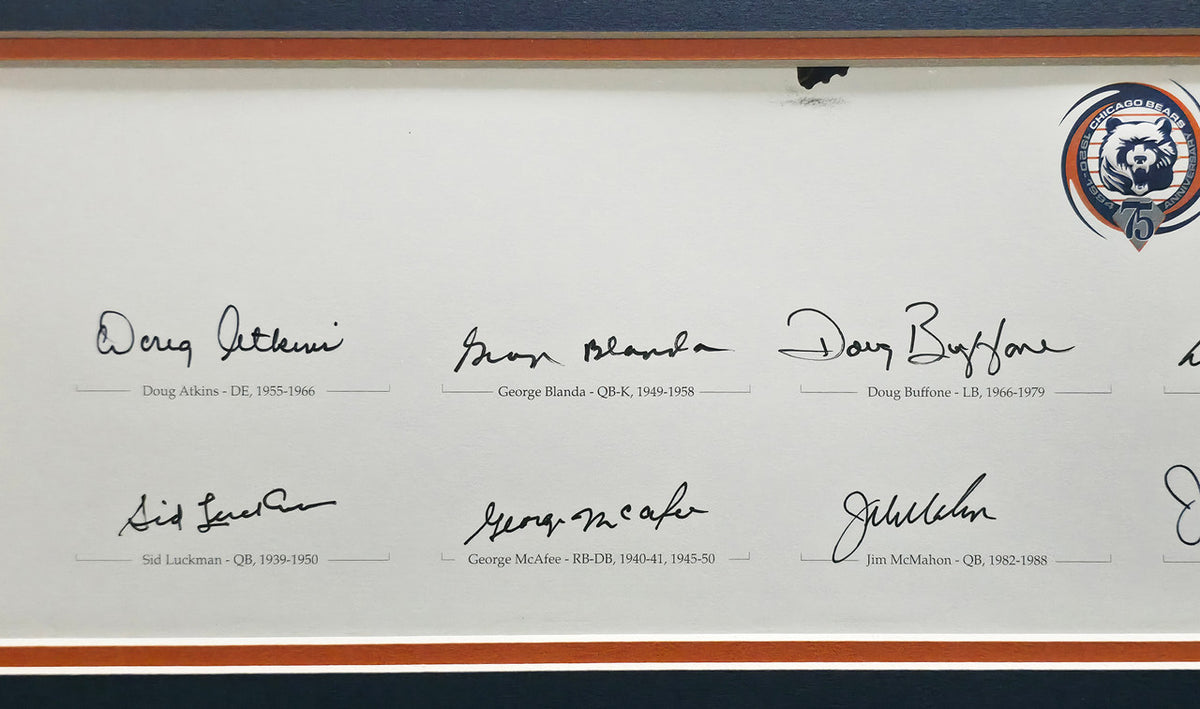 CHICAGO BEARS
1920-1994 ANNIVERSARY
75
Doug Atkins George Blanda Doug Buffone
Doug Atkins - DE, 1955-1966 George Blanda - QB-K, 1949-1958 Doug Buffone - LB, 1966-1979
Sid Luckman George McAfee Jim McMahon
Sid Luckman - QB, 1939-1950 George McAfee - RB-DB, 1940-41, 1945-50 Jim McMahon - QB, 1982-1988